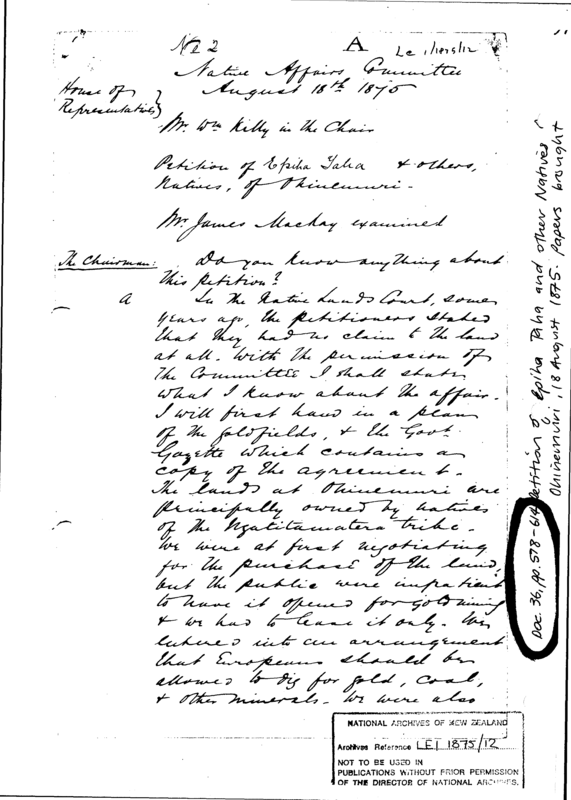 No 2 A Le 1/1875/12
Native Affairs Committee
August 18th 1875
House of
Representatives
Mr. Wm Kelly in the Chair
Petition of Epiha Taha & others,
Natives, of Ohinemuri -
Mr James Mackay examined
The Chairman: Do you know anything about
this petition?
A In the Native Lands Court, some
years ago, the petitioners stated
that they had no claim to the land
at all. With the permission of
the Committee I shall state
what I know about the affair.
I will first hand in a plan
of the goldfields, & the Govt
Gazette which contains a
copy of the agreement.
The lands at Ohinemuri are
principally owned by natives
of the Ngatitamatera tribe.
We were at first negotiating
for the purchase of the land,
but the public were impatient
to have it opened for gold mining
& we had to lease it only. We
entered into an arrangement
that Europeans should be
allowed to dig for gold, coal,
& other minerals. We were also
Doc. 36, pp. 578-614 Petition of Epiha Taha and other Natives,
Ohinemuri, 18 August 1875. Papers brought
NATIONAL ARCHIVES OF NEW ZEALAND
Archives Reference LE1 1875/12
NOT TO BE USED IN
PUBLICATIONS WITHOUT PRIOR PERMISSION
OF THE DIRECTOR OF NATIONAL ARCHIVES.